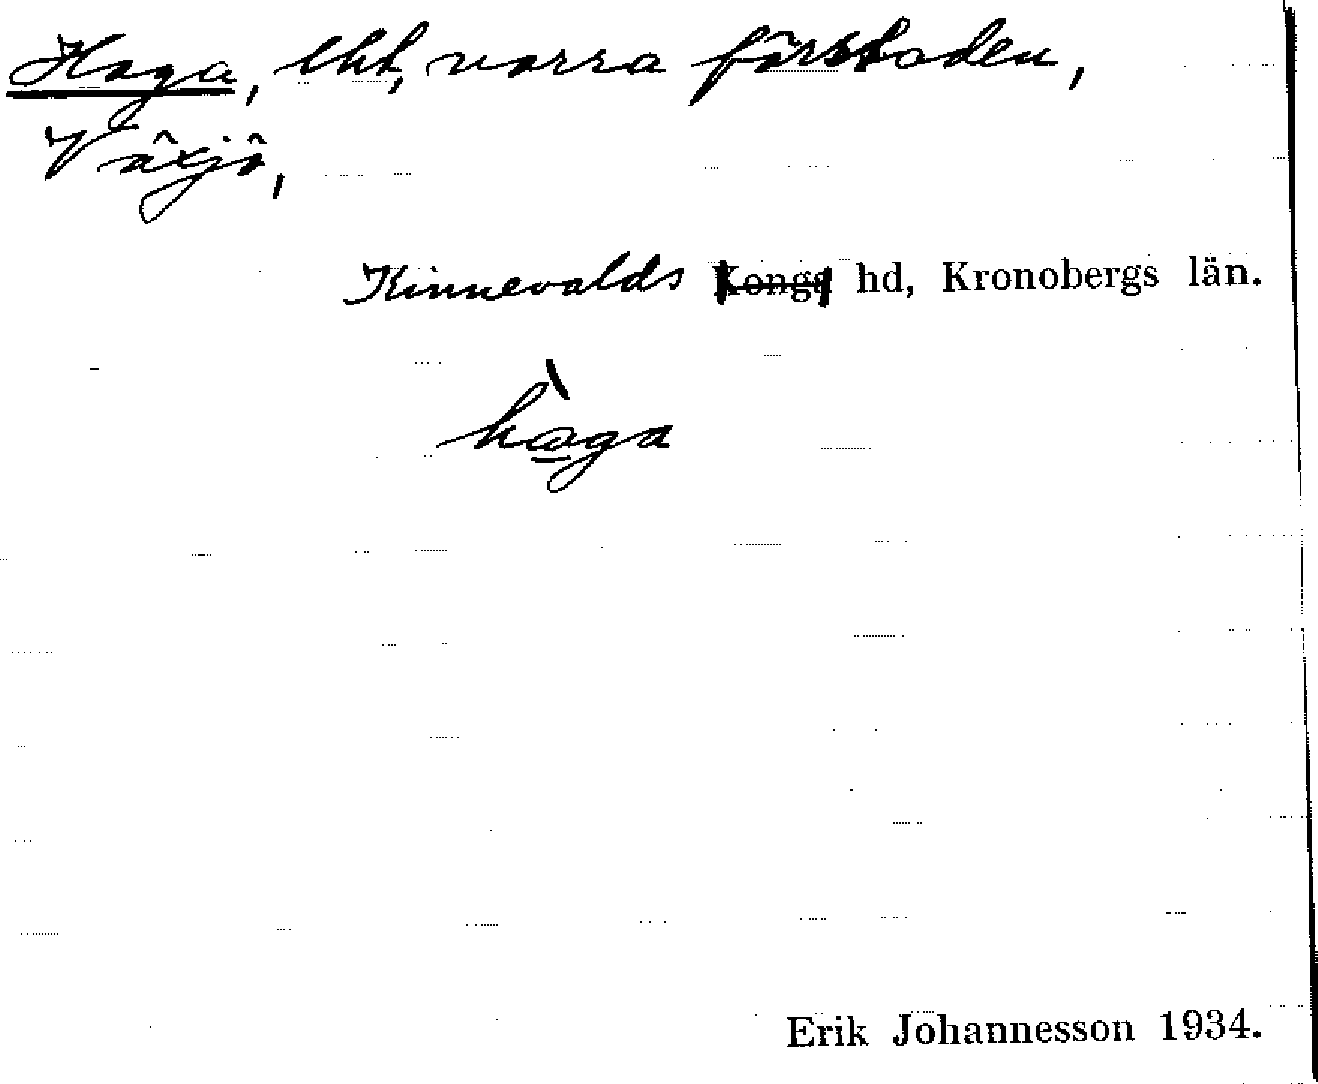 Haga, lht, norra förstaden,
Växjö,
Kinnevalds Konga hd, Kronobergs län.
hàga
Erik Johannesson 1934.